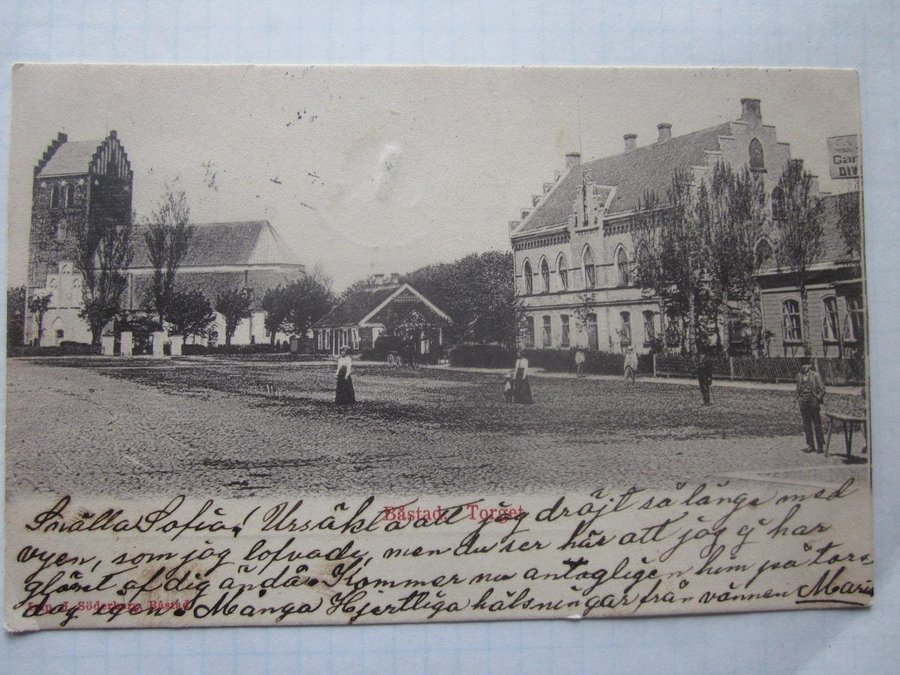 Car
DIV
Båstad. Torget.
Snälla Sofia! Ursäkta att jag dröjt så länge med
vyen, som jag lofvade, men du ser här att jag ej har
glömt af dig ändå. Kommer nu antagligen hem på tors-
dag igen. Många Hjertliga hälsningar från vännen Maria
J. Söderberg, Båstad